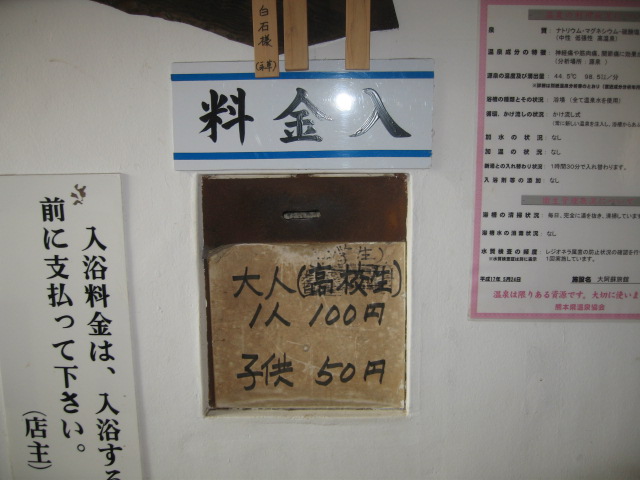 白石様
料金入
大人(高校生)
1人 100円
子供 50円
入浴料金は、入浴する
前に支払って下さい。
(店主)
泉質: ナトリウム・マグネシウム-硫酸塩
(中性 低張性 高温泉)
温泉成分の特徴: 神経痛や筋肉痛、関節痛に効果
(分析場所: 温泉)
源泉の温度及び湧出量: 44.5℃
浴槽の種類とその状況: 浴槽(全て温泉水を使用)
かけ流し式
加水の状況: なし
加温の状況: なし
1時間30分で入れ替わります。
入浴剤等の添加: なし
浴槽の清掃状況: 毎日、完全に湯を抜き、清掃しています
浴槽水の消毒状況: なし
水質検査の頻度: レジオネラ属菌の防止状況の確認を行
1回実施しています。
平成17年
施設名 大阿蘇旅館
温泉は限りある資源です。大切に使いま
熊本県温泉協会